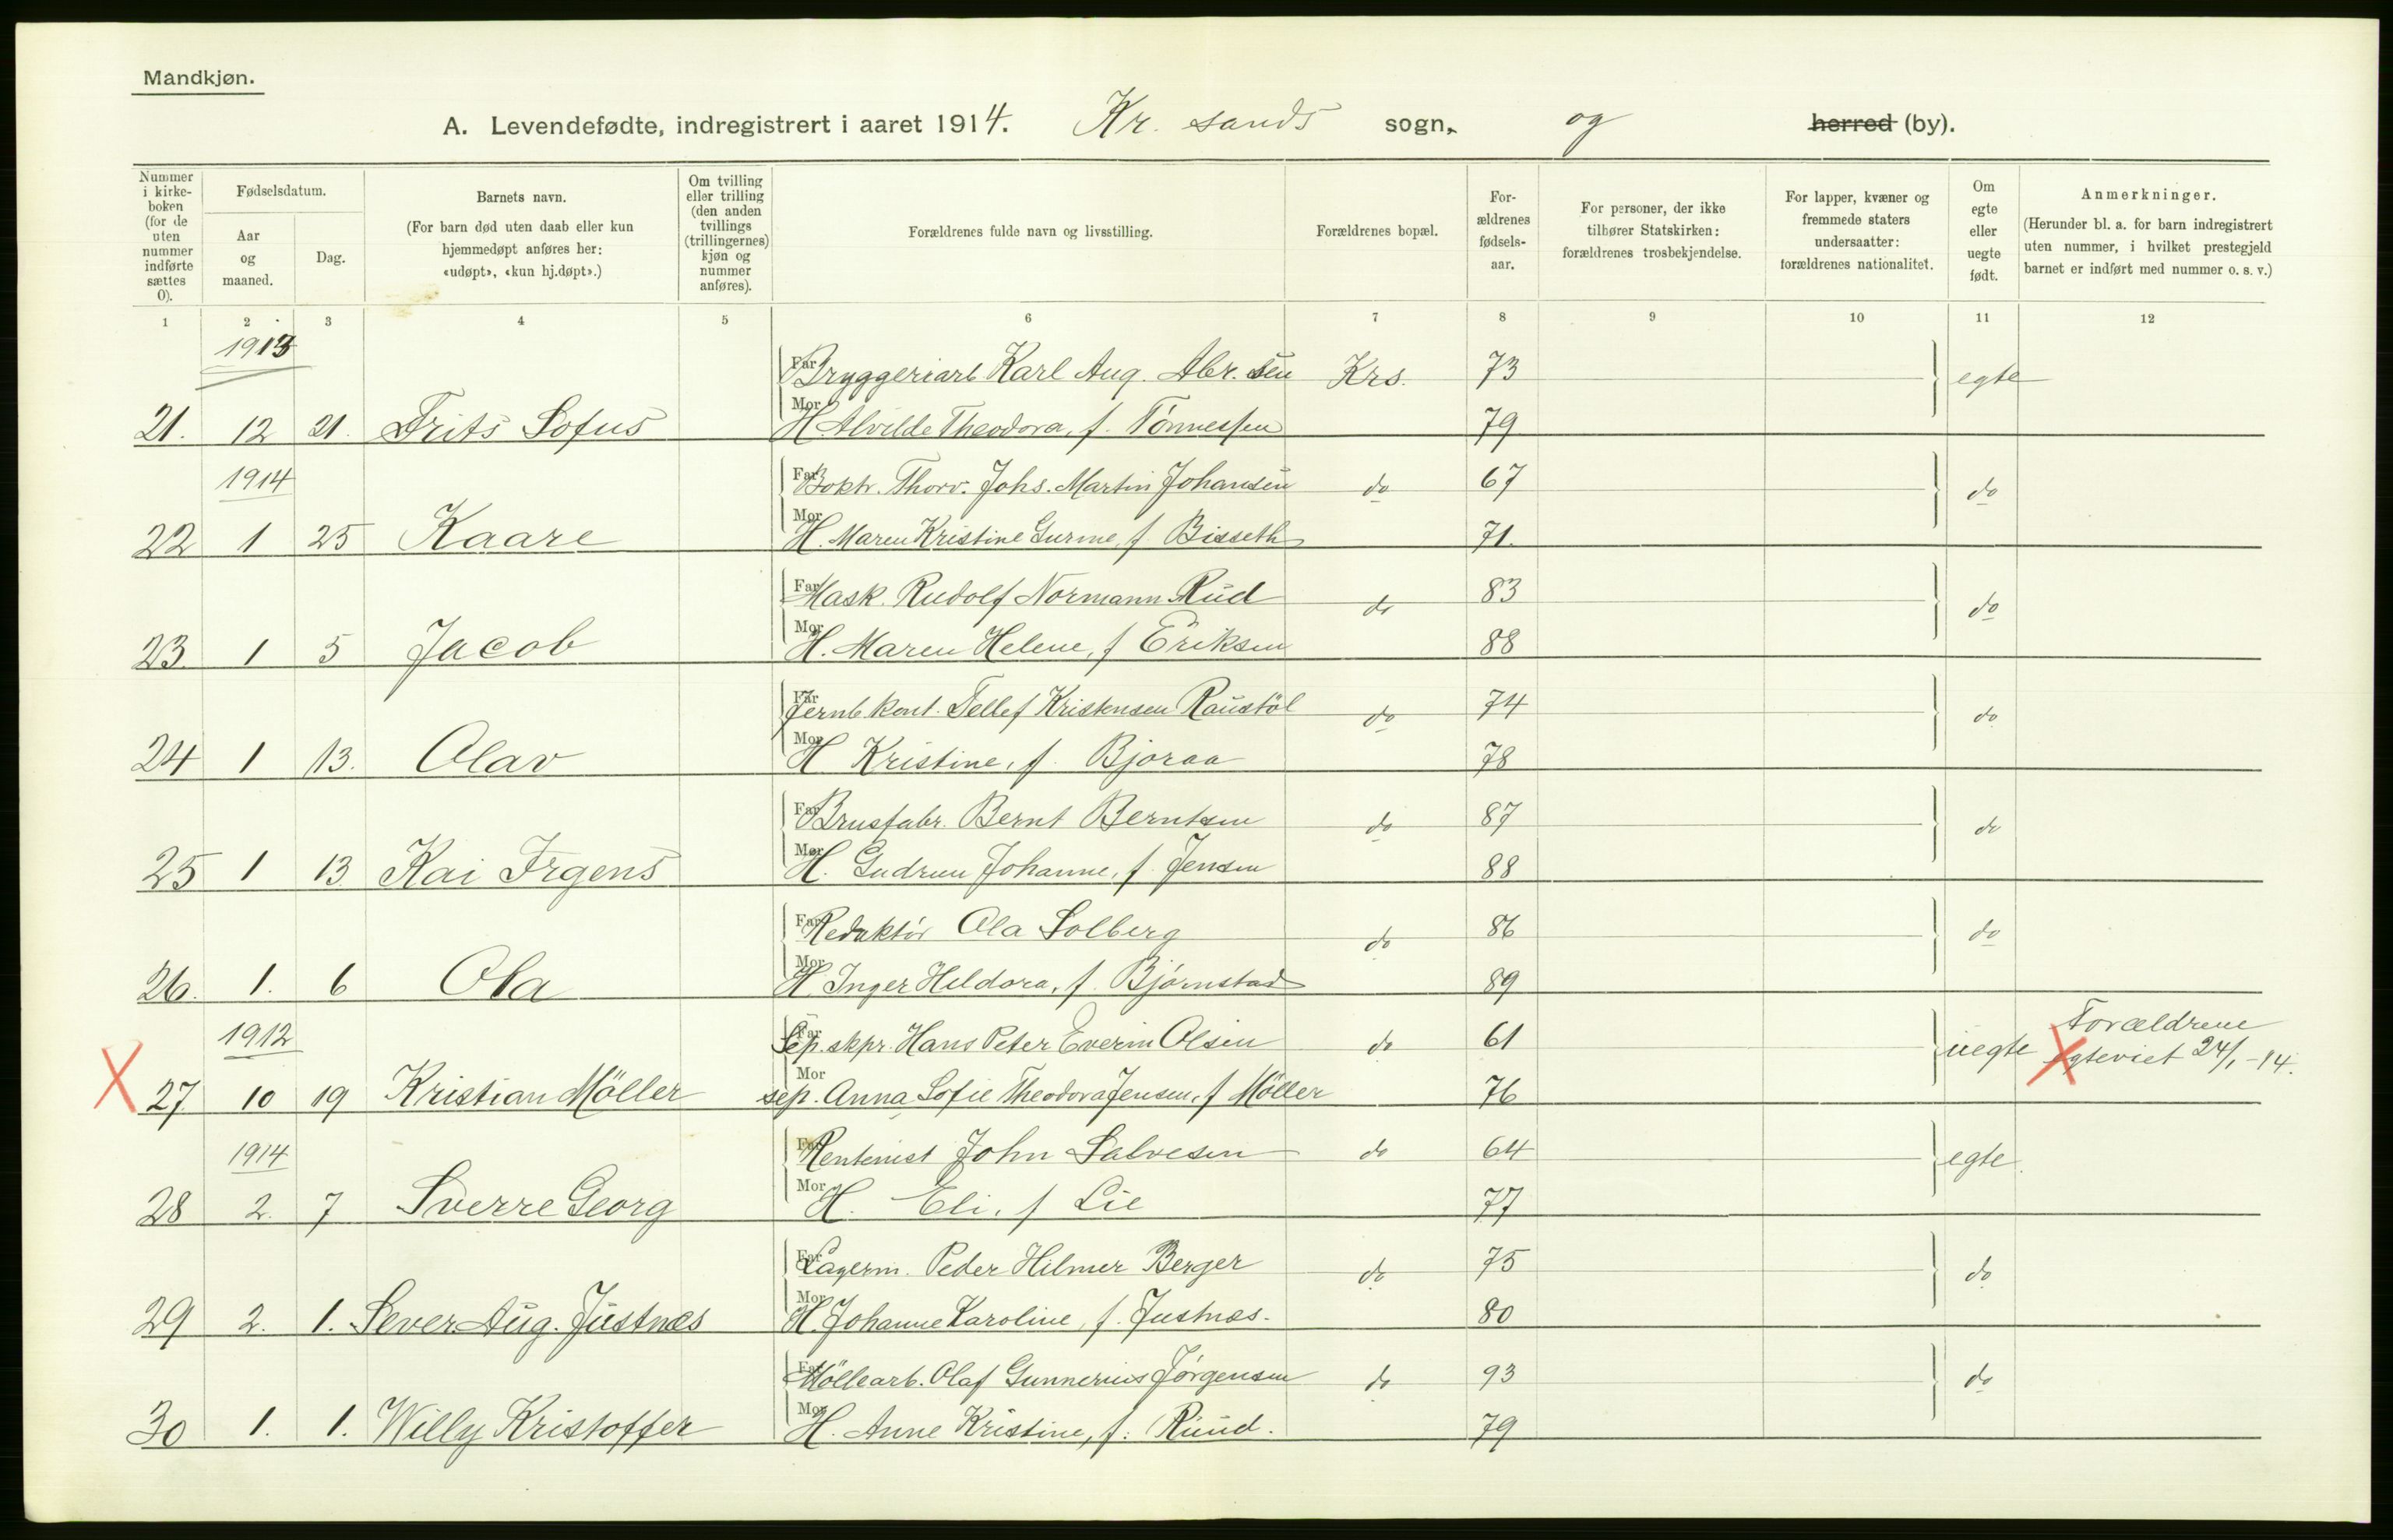 Mandkjøn.
A. Levendefødte, indregistrert i aaret 1914. Kr. sands sogn, og herred (by).
Nummer i kirke-boken (for de uten nummer indførte sættes 0).
Fødselsdatum.
Aar og maaned.
Dag.
Barnets navn.
(For barn død uten daab eller kun hjemmedøpt anføres her: «udøpt», «kun hj.døpt».)
Om tvilling eller trilling (den anden tvillings (trillingernes) kjøn og nummer anføres).
Forældrenes fulde navn og livsstilling.
Forældrenes bopæl.
For-ældrenes fødsels-aar.
For personer, der ikke tilhører Statskirken: forældrenes trosbekjendelse.
For lapper, kvæner og fremmede staters undersaatter: forældrenes nationalitet.
Om egte eller uegte født.
Anmerkninger.
(Herunder bl. a. for barn indregistrert uten nummer, i hvilket prestegjeld barnet er indført med nummer o. s. v.)
1 2 3 4 5 6 7 8 9 10 11 12
1913
Far Bryggeriarb Karl Aug. Abr. sen Krs. 73 egte
21. 12 21. Frits Sofus Mor H. Alvilde Theodora, f. Tönnessen 79
1914
Far Boktr. Thorv. Johs. Martin Johansen do 67 do
22 1 25 Kaare Mor H. Maren Kristine Gurine, f Bisseth 71.
Far Mask. Rudolf Normann Rud do 83 do
23. 1 5 Jacob Mor H. Maren Helene, f Eriksen 88
Far Jernb kont. Tellef Kristensen Raustöl do 74 do
24 1 13. Olav Mor H Kristine, f. Bjoraa 78
Far Brusfabr. Bernt Berntsen do 87 do
25 1 13 Kai Irgens Mor H. Gudrun Johanne, f. Jensen 88
Far Redaktör Ola Solberg do 86 do
26. 1. 6 Ola Mor H. Inger Heldora, f. Björnstad 89
1912
Far Sep. skpr. Hans Peter Everin Olsen do 61 uegte Forældrene
egteviet 24/1-14.
X 27. 10 19 Kristian Möller Mor sep. Anna Sofie Theodora Jensen, f Möller 76 X
1914
Far Rentenist John Salvesen do 64 egte
28 2. 7 Sverre Georg Mor H. Eli, f Lie 77
Far Lagerm. Peder Hilmer Berger do 75 do
29 2. 1. Sever Aug. Justnæs Mor H. Johanne Karoline, f. Justnæs. 80
Far Möllearb. Olaf Gunnerius Jörgensen do 93 do
30 1. 1. Willy Kristoffer Mor H. Anne Kristine, f. Ruud. 79